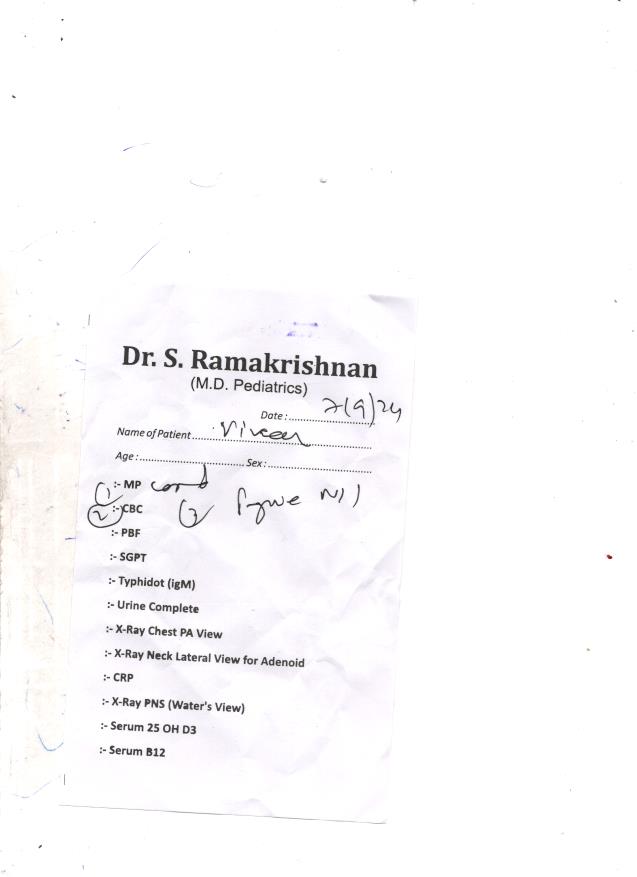 Dr. S. Ramakrishnan
(M.D. Pediatrics)
Date : 7/9/24
Name of Patient
Age : Sex :
① :- MP card
② :- CBC ③
:- PBF
:- SGPT
:- Typhidot (igM)
:- Urine Complete
:- X-Ray Chest PA View
:- X-Ray Neck Lateral View for Adenoid
:- CRP
:- X-Ray PNS (Water's View)
:- Serum 25 OH D3
:- Serum B12